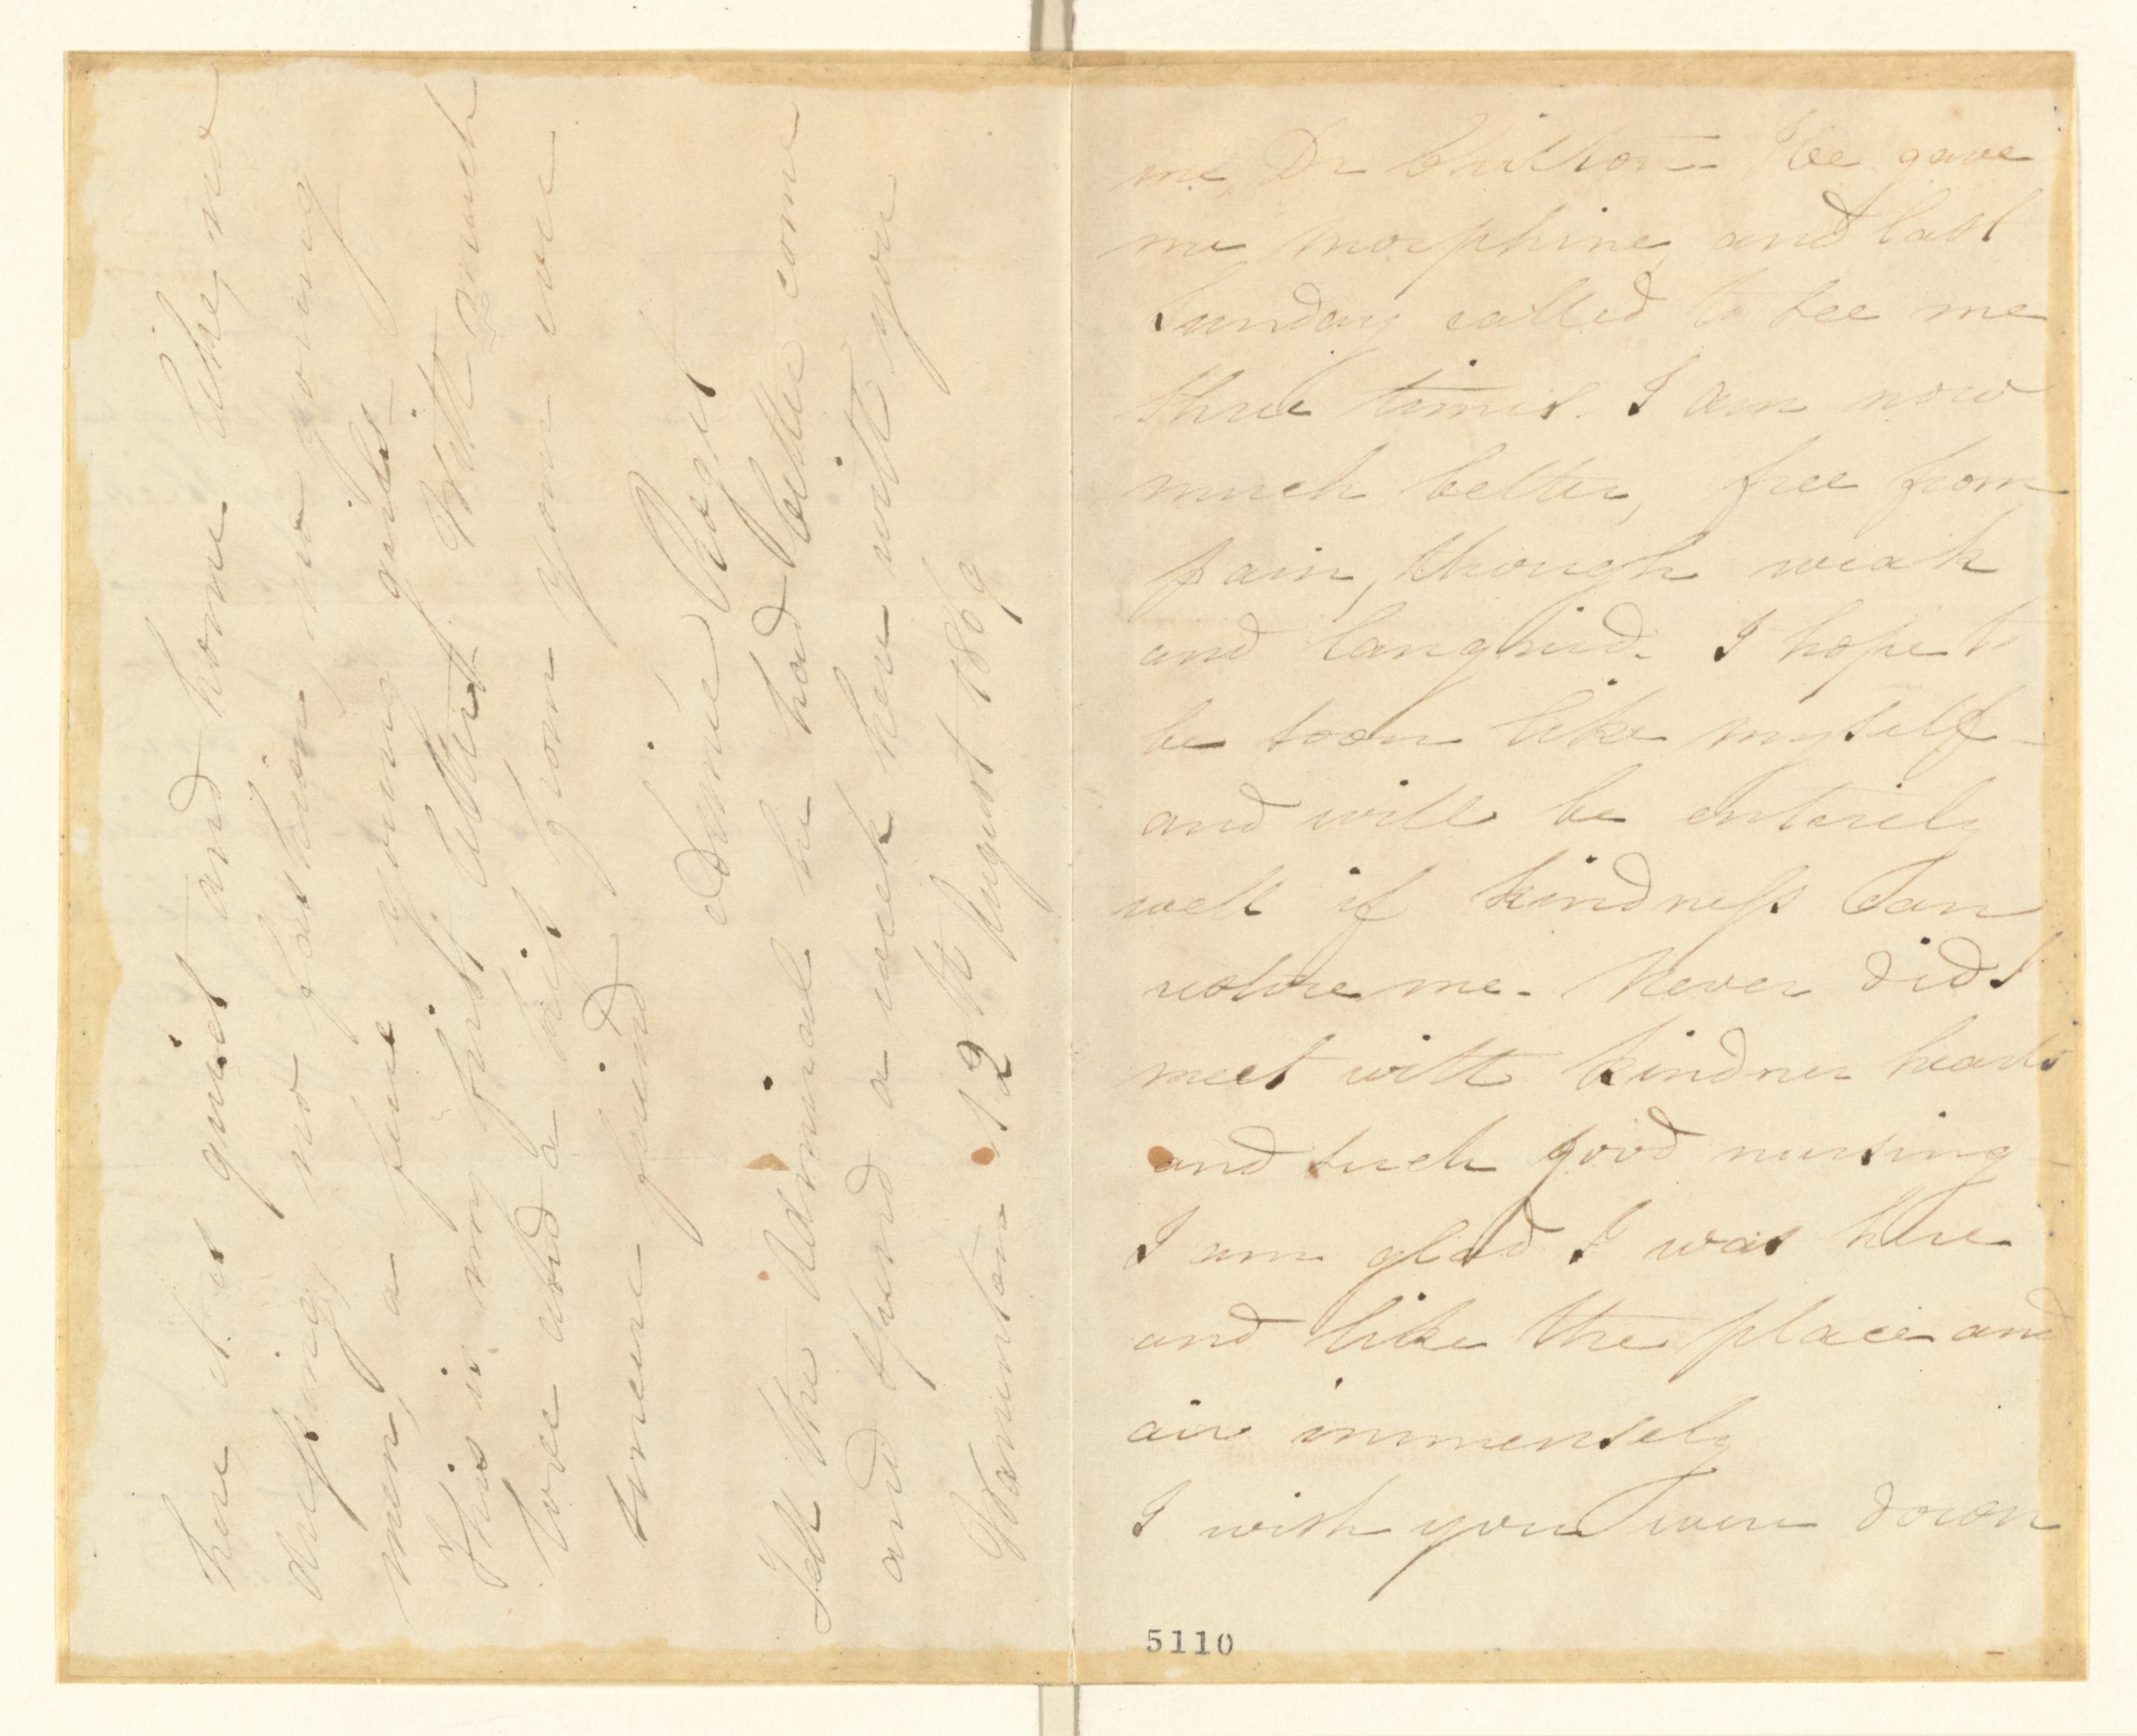 me, Dr Chilton- He gave
me morphine, and last
Sunday called to see me
three times. I am now
much better, free from
pain, though weak
and languid. I hope to
be soon like myself-
and will be entirely
well if kindness can
restore me. Never did I
meet with kindner hearts
and such good nursing-
I am glad I was here
and like the place and
air immensely
I wish you were down
5110
here it is quiet and home like, no
dressing, no fashion, no young
men, a few young girls-
This is my first letter. With much
love and a kiss from your own
sincere friend
Annie Rogit
Tell the Admiral he had better come
and spend a week here with you
12th August 1869